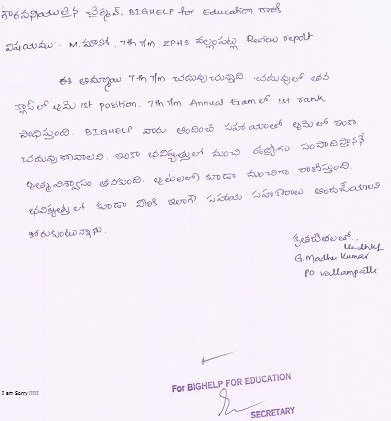 గౌరవనీయులైన చైర్మన్, BIGHELP for Education గారికి
విషయము: M. 7th T/m ZPHS Review report
ఈ అమ్మాయి 7th T/m చదువుచున్నది. చదువులో తన
క్లాస్ లో ఈమె 1st position. 7th T/m Annual Exam లో 1st rank
సాధిస్తుంది. BIGHELP వారు అందించే సహాయంతో ఈమెలో ఇంకా
చదువుకోవాలని, ఇంకా భవిష్యత్తులో మంచి ఉద్యోగం సంపాదిస్తాననే
ఆత్మవిశ్వాసం తనకుంది. ఆటలలో కూడా మంచిగా రాణిస్తుంది.
భవిష్యత్తులో కూడా మీరు ఇలాగే సహాయ సహకారాలు అందజేయాలని
కోరుకుంటున్నాను.
కృతజ్ఞతలతో..
G. Madhu Kumar
PO Vallampatla
For BIGHELP FOR EDUCATION
SECRETARY
I am Sorry !!!!!